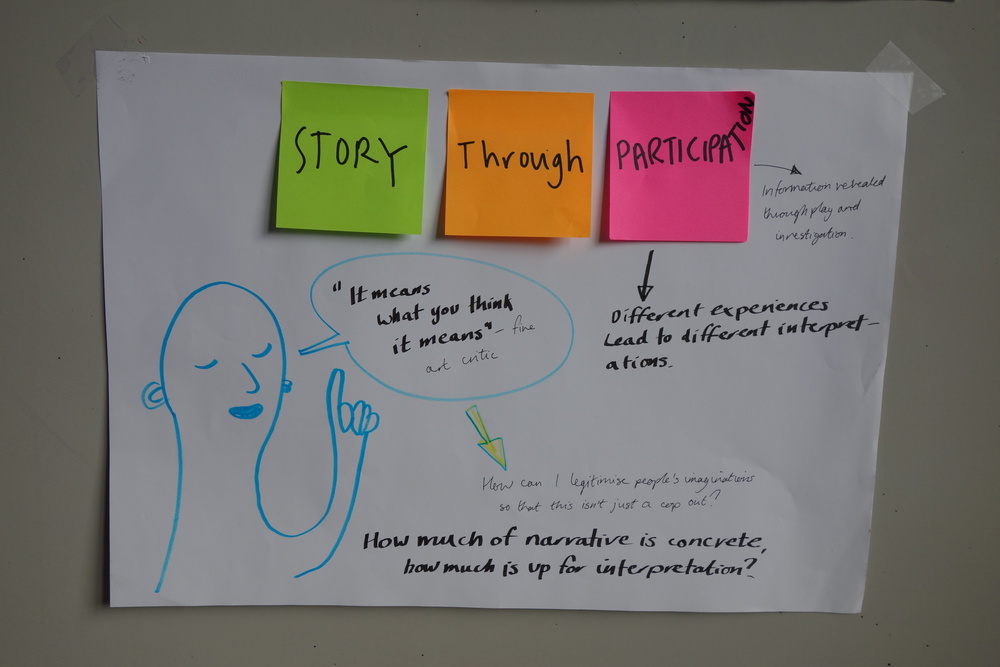 STORY
Through
PARTICIPATION
Information revealed
through play and
investigation.
"It means
what you think
it means" - fine
art critic
Different experiences
Lead to different interpret-
ations.
How can I legitimise people's imaginations
so that this isn't just a cop out?
How much of narrative is concrete,
how much is up for interpretation?